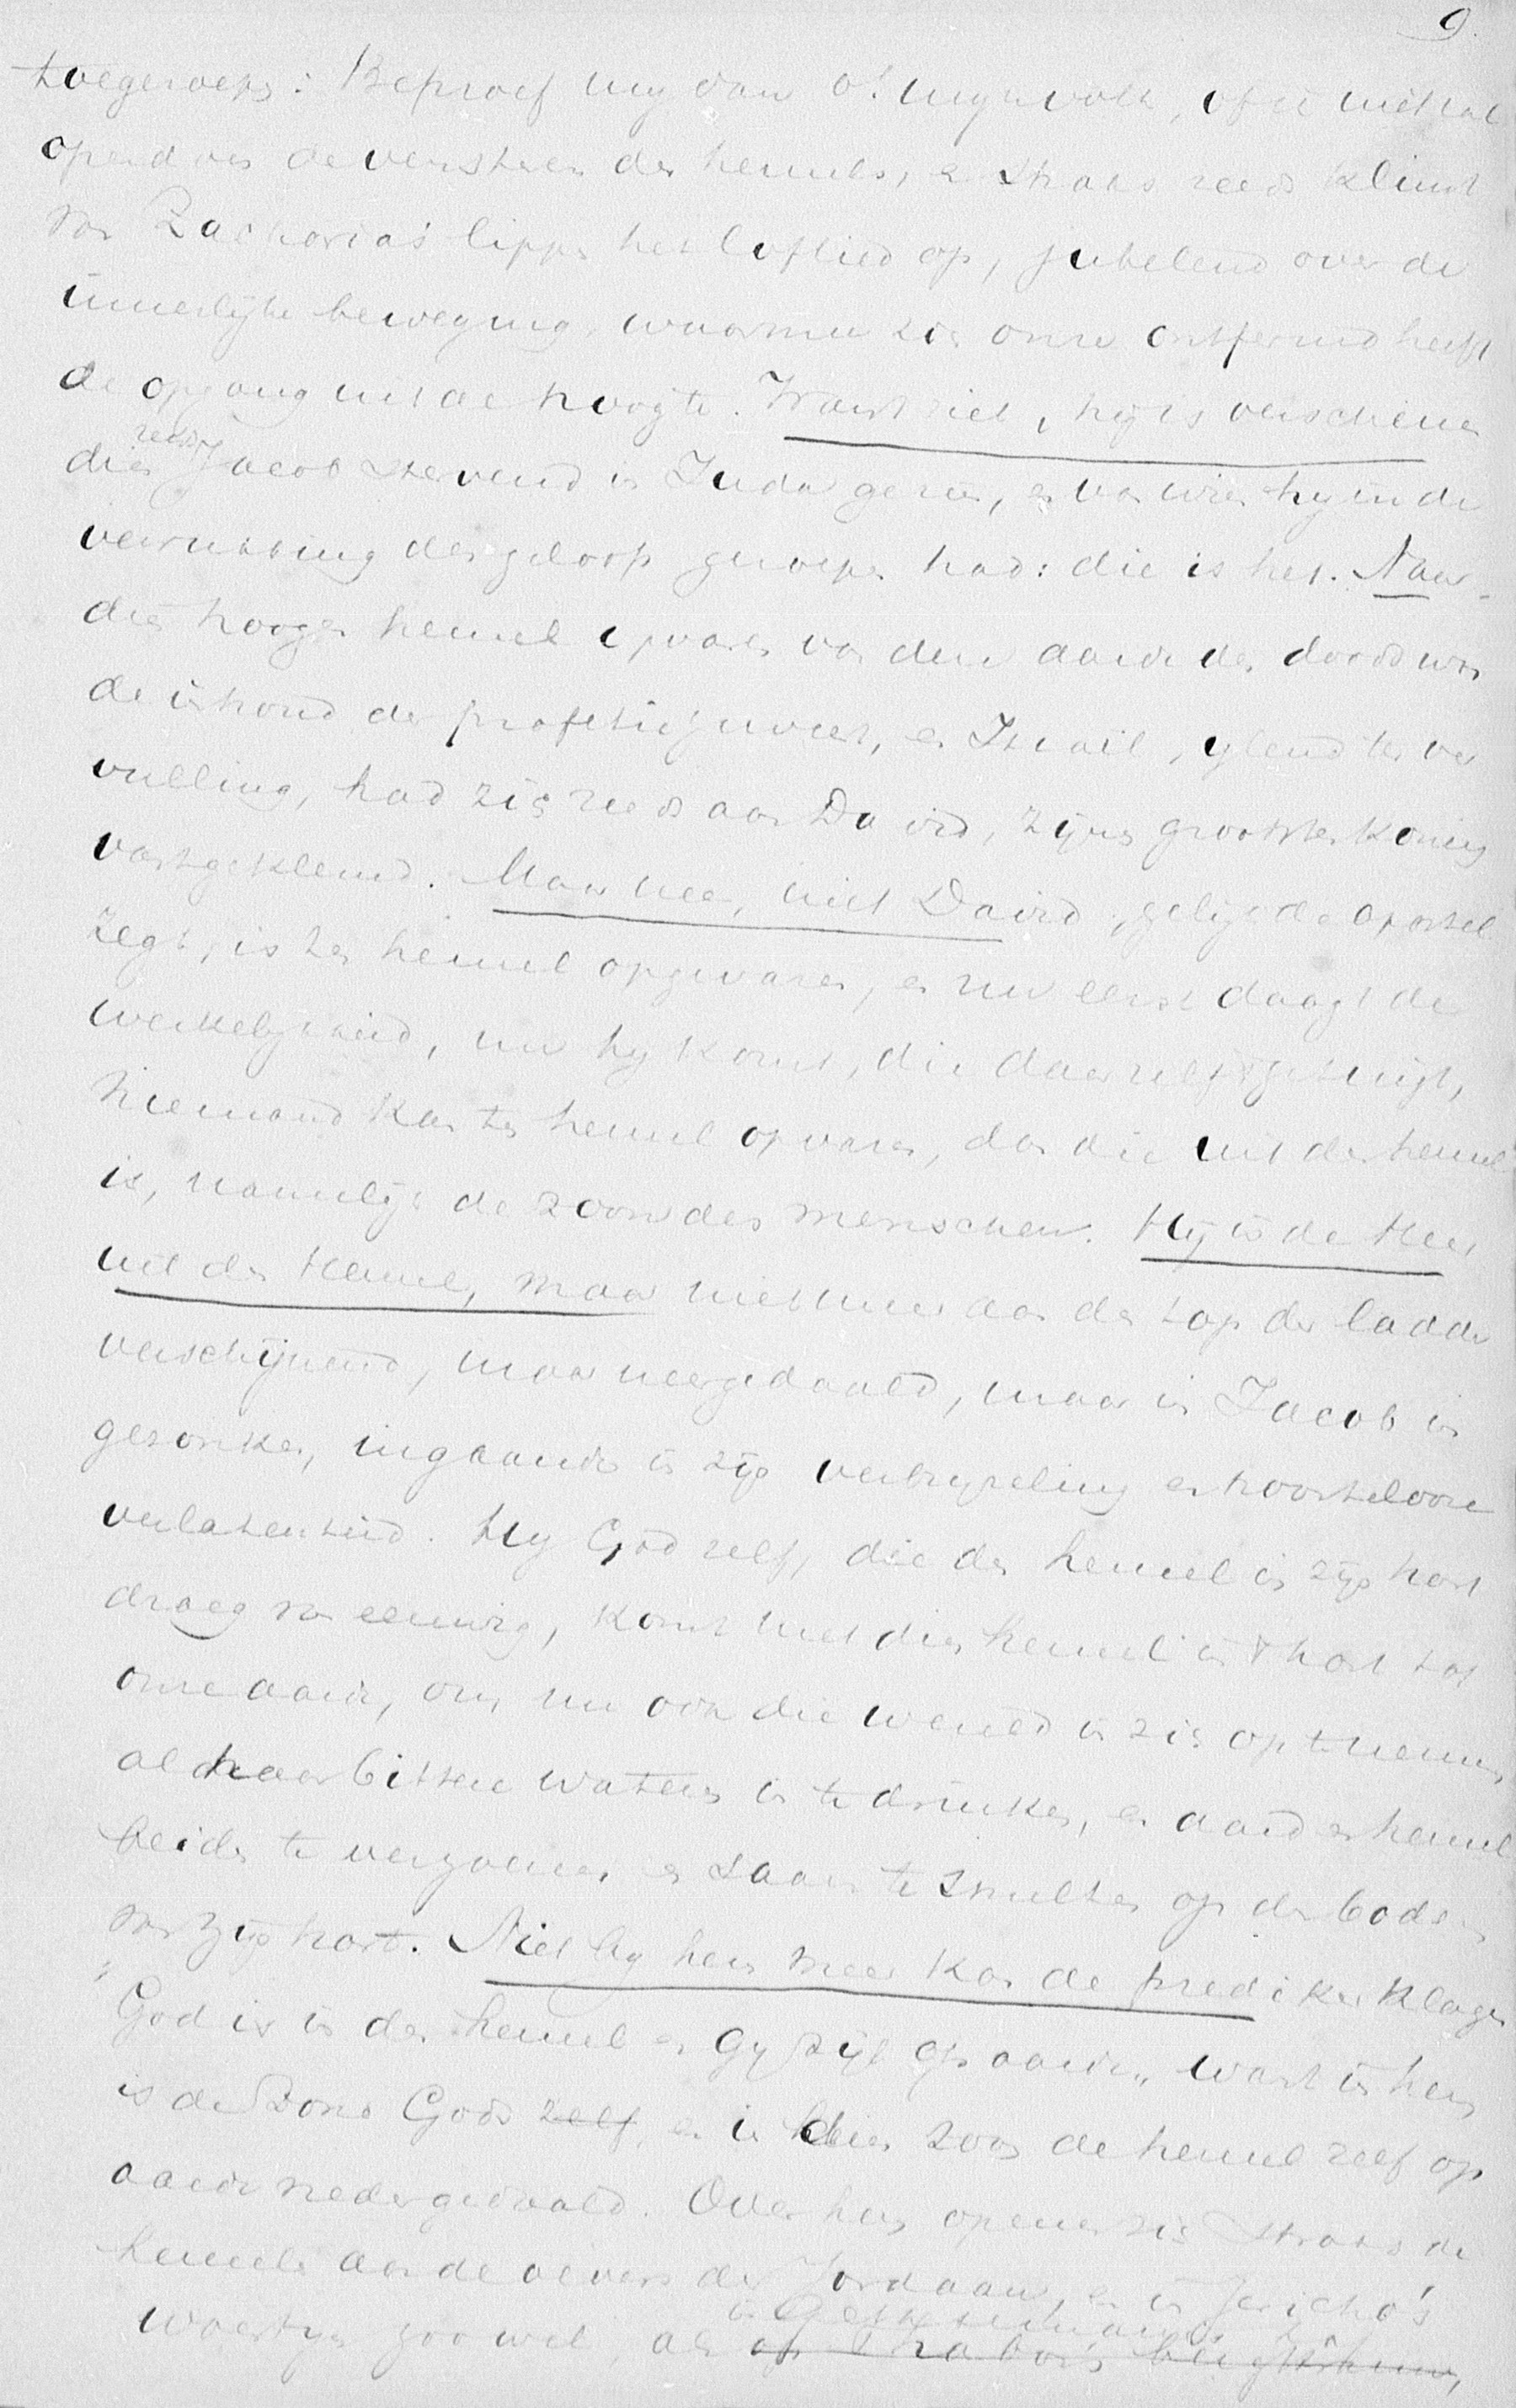 9.
toegeroepen: Beproef my dan o! mijn volk, of ik niet zal
opend ver de vensteren des hemels, en straks reeds klimt
van Zacharias lippen het loflied op, jubelend over de
innerlijke beweging, waarmee zich onzer ontfermd heeft
de opgang uit de hoogte. Want ziet, hij is verschenen
dien reeds Jacob stervend in Juda gezien, en van wien hy in de
verrukking des geloofs geroepen had: die is het. Naar
dien hoogen hemel opvaren van deze aarde des doods was
de inhoud der profetie geweest, en Israël, ylend ter ver
vulling, had zich reeds aan David, zijnen grootsten Koning
vastgeklemd. Maar nee, niet David, gelijk de apostel
zegt, is ten hemel opgevaren, en nu eerst daagt de
werkelijkheid, nu hy komt, die daar zelf getuigt,
Niemand kan ten hemel opvaren, dan die uit den hemel
is, namelijk de zoon des menschen. Hij is de Heer
uit den Hemel, maar niet meer aan den top der ladder
verschijnend, maar neergedaald, maar in Jacob in
gezonken, ingaande in zijn verbryzeling en troostelooze
verlatenheid. Hy God zelf, die den hemel in zijn hart
draeg van eeuwig, komt met dien hemel in 't hart tot
onze aarde, om nu ook die wereld in zich op te nemen,
al haar bittere wateren in te drinken, en aard en hemel
beide te verzoenen en saam te smelten op den bodem
van zijn hart. Niet by hem meer kan de prediker klagen
"God is in den hemel en gy zijt op aarde" want in hem
is de Zone Gods zelf, en in dien zoon de hemel zelf op
aarde nedergedaald. Over hem openen zich straks de
hemelen aan de oevers der Jordaan, en in Jericho's
in Gethsemané's
woestyn zoo wel, als op Thabor's berg